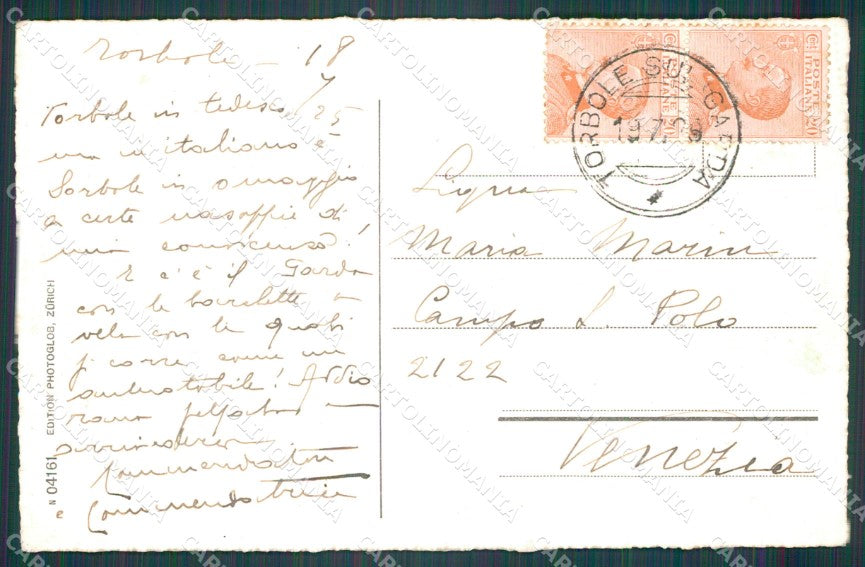 Torbole - 18
7
Torbole in tedesco 25
ma in italiano è
Sorbole in omaggio
a certe
una
E c'è il Garda
con le barchette a
vela con le quali
si corre come un
automobile! Addio
rana
arrivederci
Commendatori
e Commendatrice
N 04161 EDITION PHOTOGLOB, ZÜRICH
POSTE ITALIANE
CENT 20
POSTE ITALIANE
CENT 20
TORBOLE SUL GARDA
19.7.
Signa
Maria Marin
Campo S. Polo
2122
Venezia
CARTOLINOMANIA